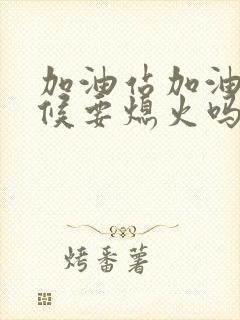 加油站加油
候要熄火吗
烤番薯